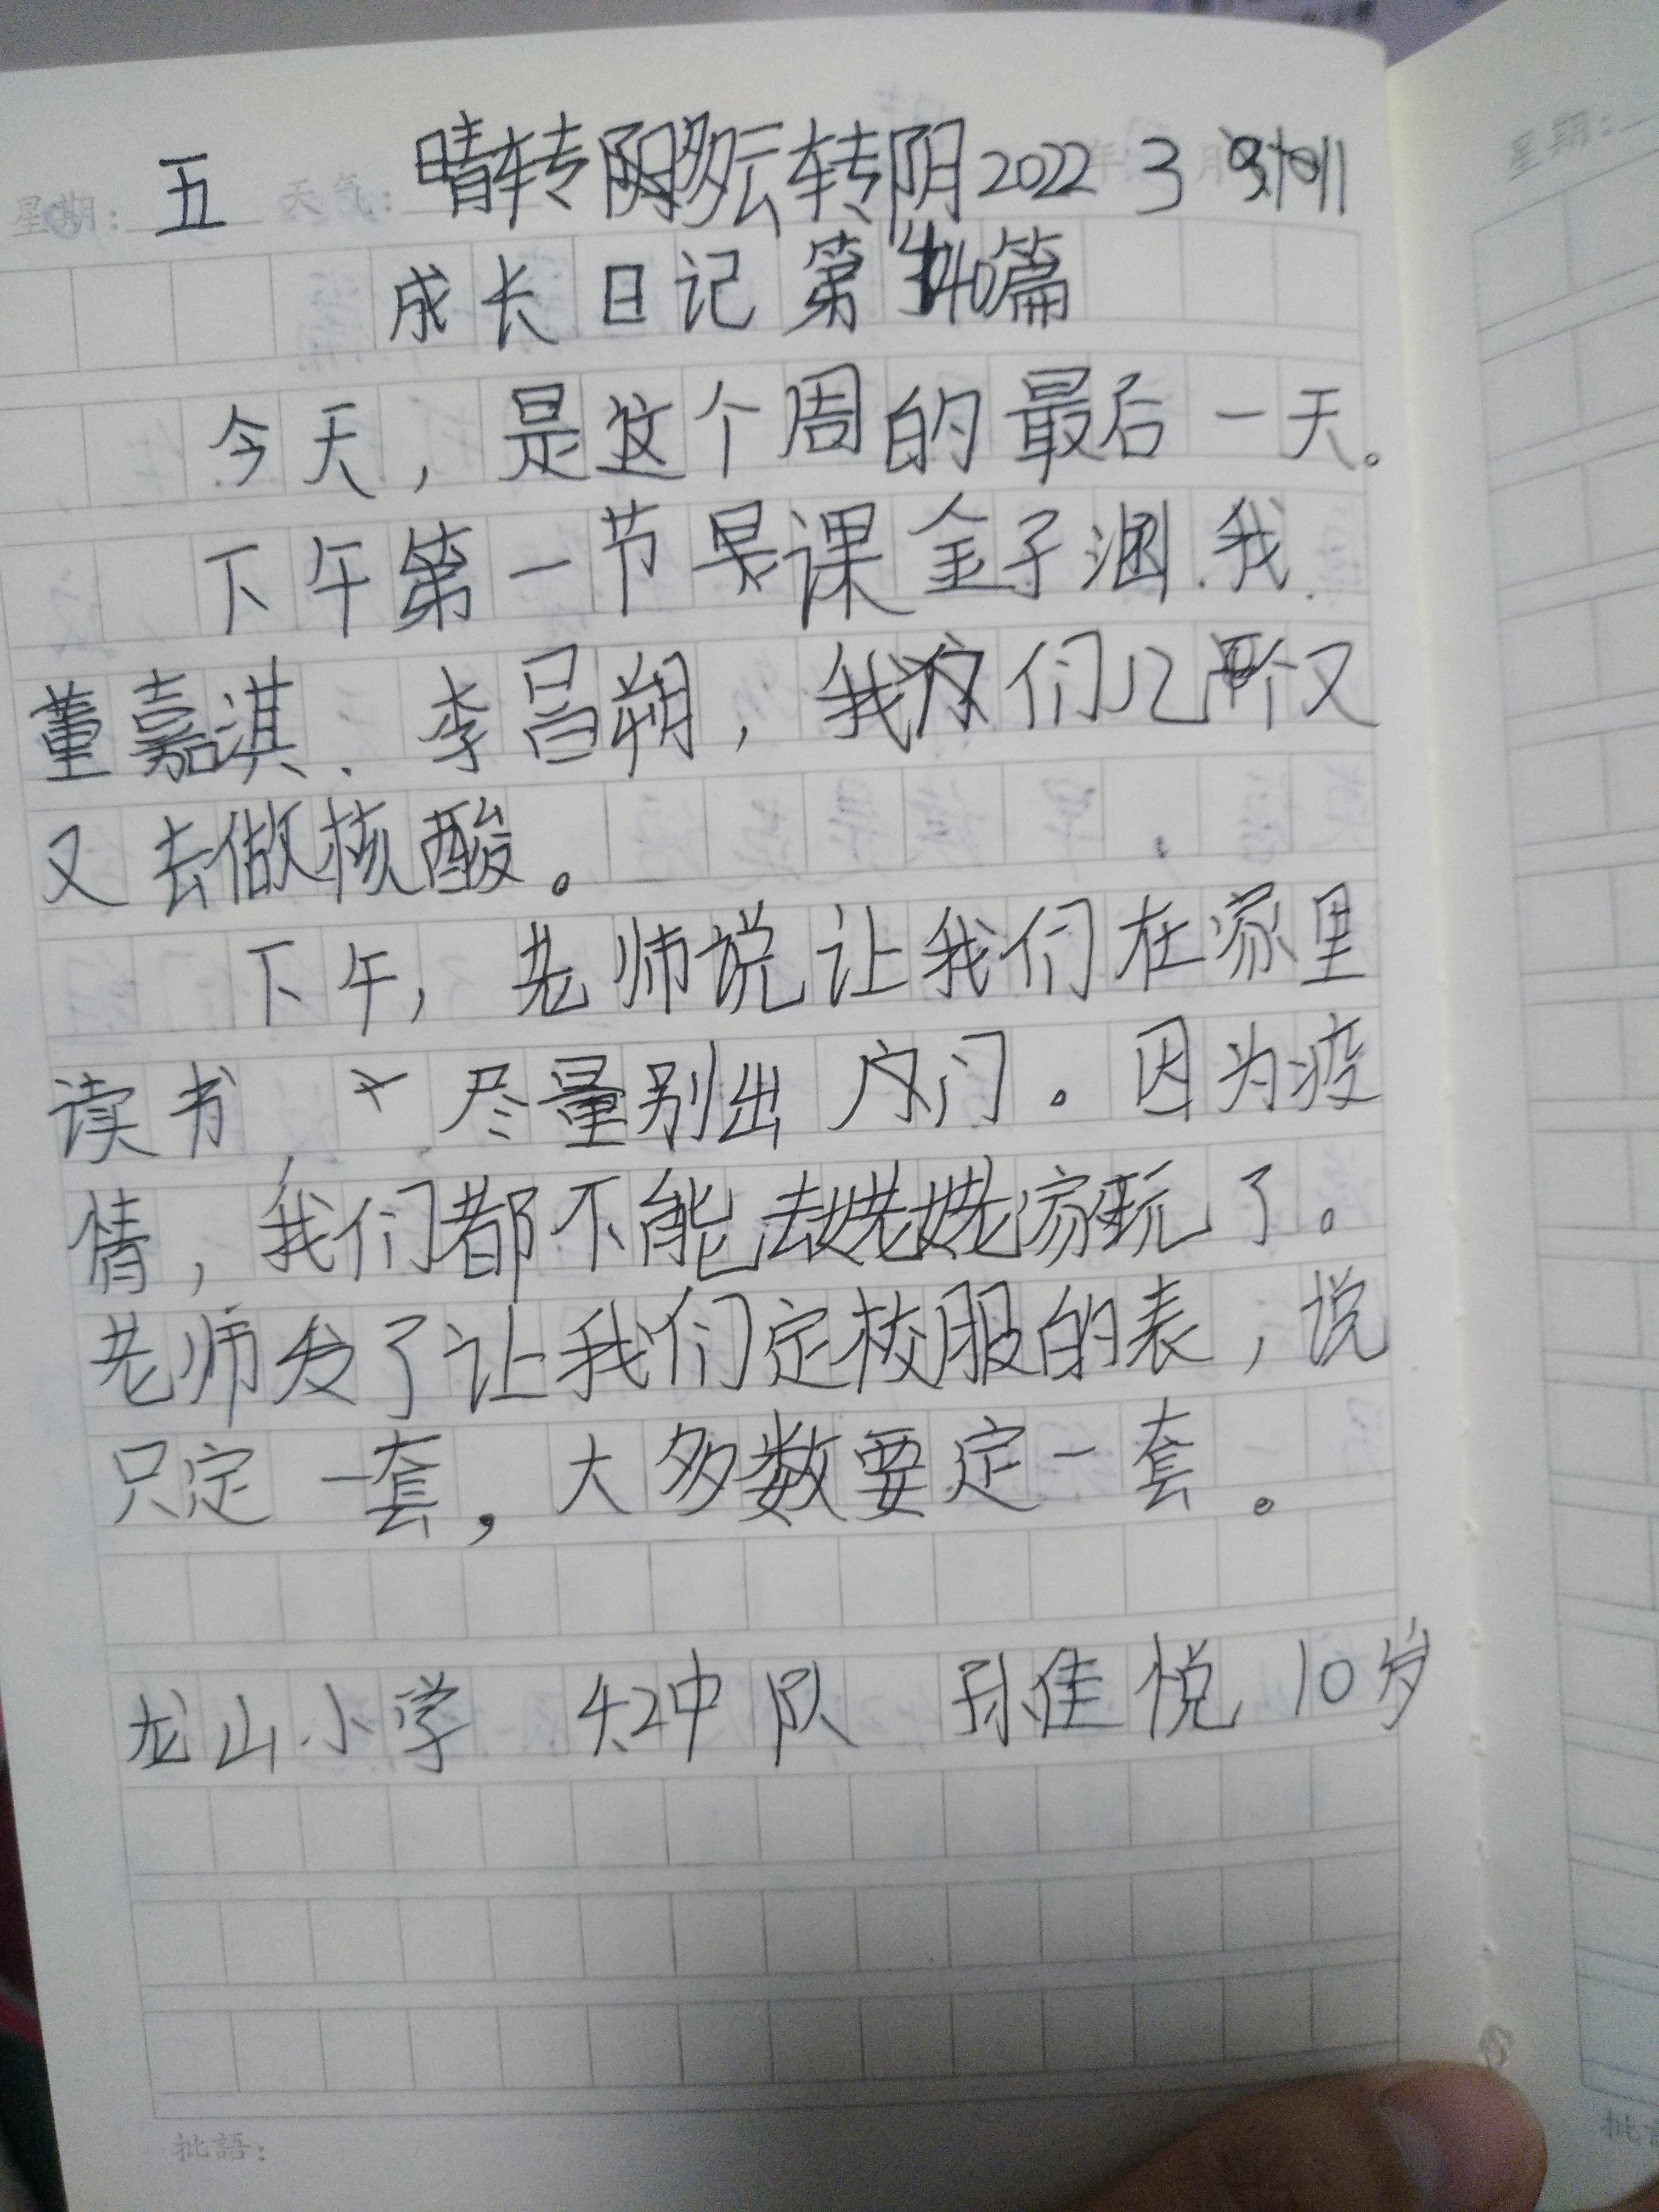 星期：五 天气：晴转阴多云转阴 2022 3 11
成长日记第40篇
今天，是这个周的最后一天。
下午第一节是课金子涵、我、
董嘉淇、李昌朔，我们几个又
又去做核酸。
下午，老师说让我们在家里
读书，尽量别出门。因为疫
情，我们都不能去姥姥家玩了。
老师发了让我们定校服的表，说
只定一套，大多数要定一套。
龙山小学 4.2中队 孙佳悦 10岁
批語：
星期：